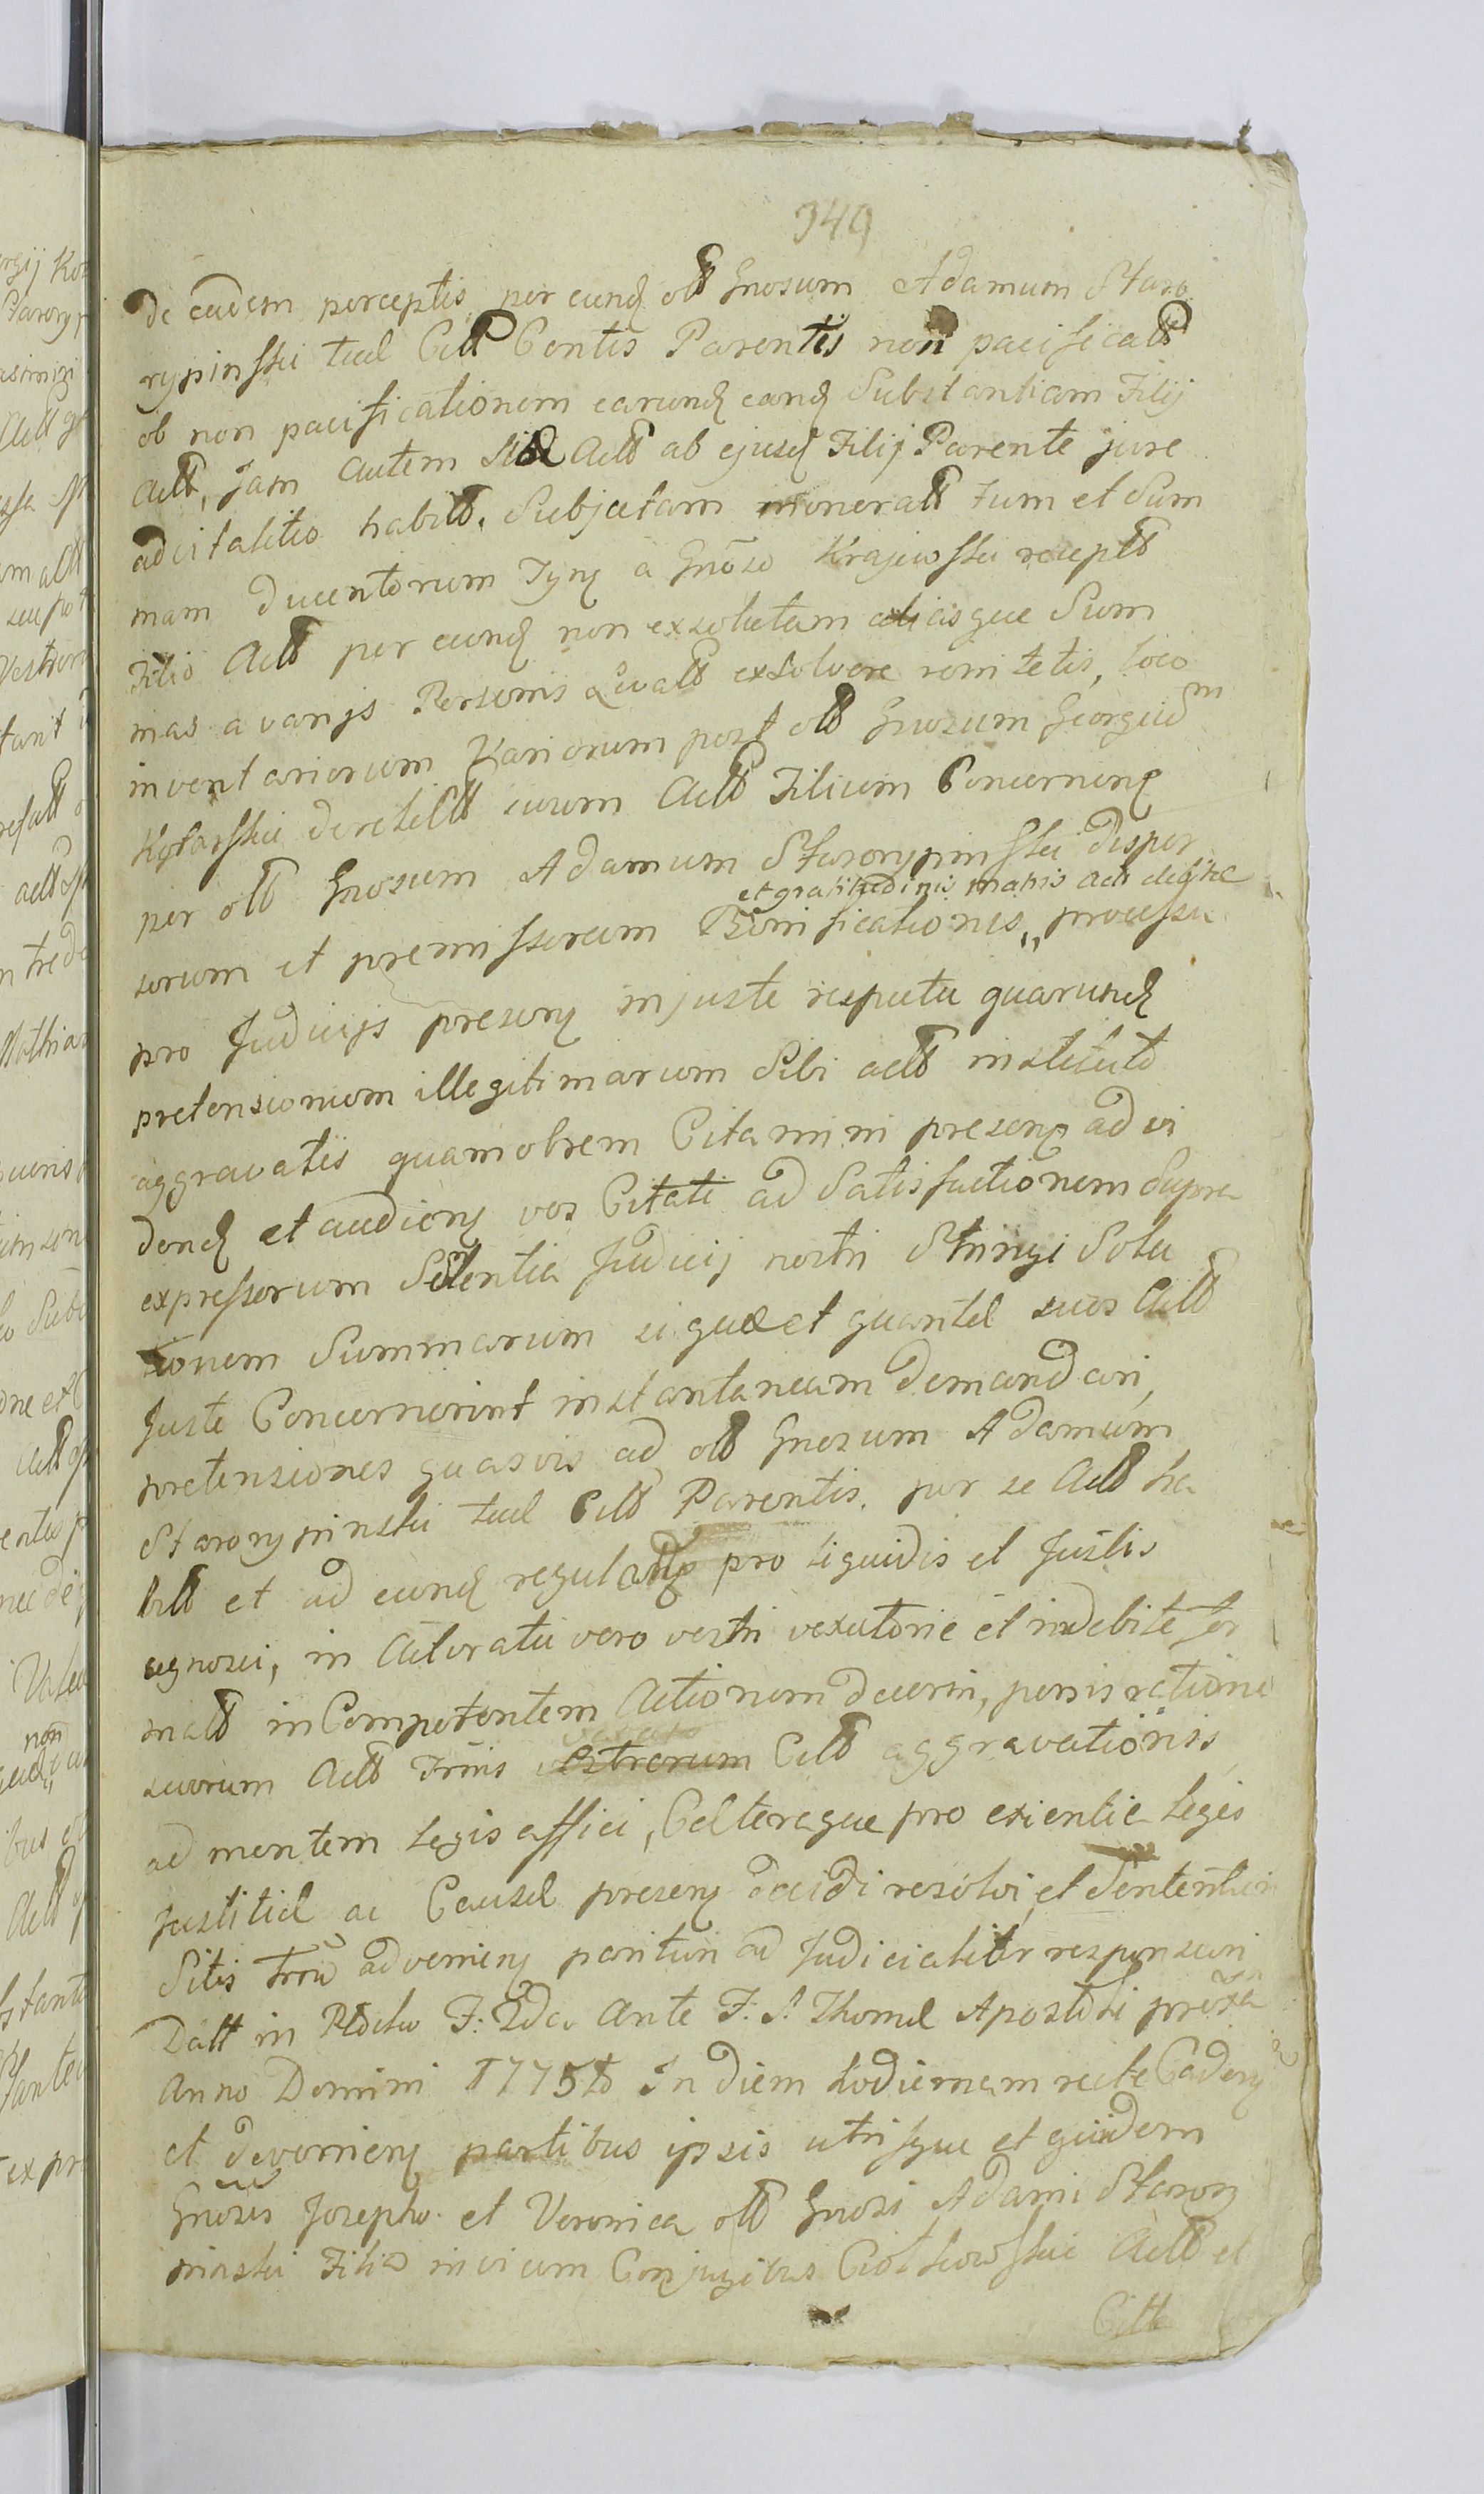 349
de eadem perceptis per eund ol Gnosum Adamum Staro
rypinski tuae Citt Contis Parentis non pacificatt
ob non pacificationem earund eand Substantiam Filij
Actt, Jam autem Actt ab ejusd Filij Parente jure
advitalitio habitt, Subjectam inoneratt tum et Sum
mam Ducentorum Tyng a Gnoso Krajewski receptt
Filio Actt per eund non exsolutam aliasque Sum
mas a varijs Personis Levatt exsolvere renitetis, loco
inventariorum variorum post ol Gnosum Georgium
Kotarski derelictt suum Actt Filium Concernen
per ol Gnosum Adamum Starorypinski disper
et gratitudinis matris Acti debitae
sorum et premissorum Bonificationis „ processu
pro Judicijs presen injuste respectu quarund
pretensionum illegitimarum Sibi actt institutto
aggravatis quamobrem Citamini presen ad vi
dend et audien vos Citati ad Satisfactionem Supra
expressorum Sententia Judicij nostri Stringi Solu
tionem Summarum si quae et quantae suos Actt
Juste Concernerint instantaneam demandari,
pretensiones quasvis ad ol Gnosum Adamum
Starorypinski tuae Citt Parentis per se Actt ha
bitt et ad eund regulan pro liquidis et Justis
agnosci, in Actoratu vero vestri vexatorie et indebite for
matt inCompetentem Actionem decerni, penis ratione
suorum Actt Trnis vestrorum Citt aggravationis
ad mentem Legis affici, Caeteraque pro exientia Legis
Justitiae ac Causae presen decidi resolvi et Sententiari
Sitis trno advenien parituri ad Judicialiter responsuri
Datt in F: 2da Ante F: S: Thomae Apostoli proxa
Anno Domini 1775to In diem hodiernam recte Caden
et devenien partibus ipsis utrisque et quidem
Gnosis Josepho et Veronica ol Gnosi Adami Starory
pinski Filia invicem Conjugibus Ciotkowskie Actt et
Citt